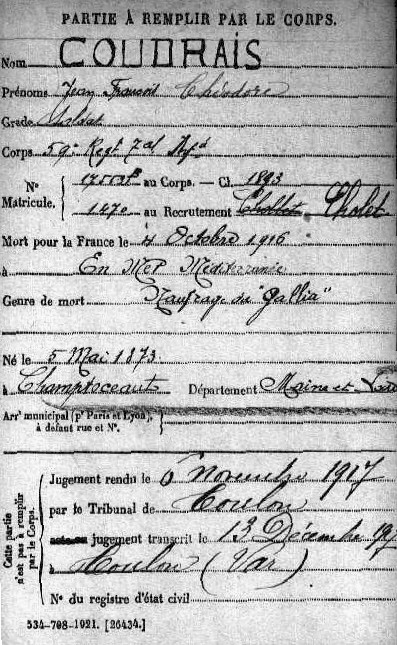 PARTIE À REMPLIR PAR LE CORPS.
Nom COUDRAIS
Prénoms Jean François Théodore
Grade Soldat
Corps 59e Regt
N° Matricule. au Corps. — Cl. 1893
1470 au Recrutement Chollet Cholet
Mort pour la France le 4 Octobre 1916
à En Mer Méditerranée
Genre de mort Naufrage du "Gallia"
Né le 5 Mai 1873
à Champtoceaux Département Maine et Loire
Arrt municipal (pr Paris et Lyon), à défaut rue et N°.
Cette partie n'est pas à remplir par le Corps.
Jugement rendu le 6 novembre 1917
par le Tribunal de Toulon
jugement transcrit le 13 Décembre 1917
à Toulon (Var)
N° du registre d'état civil
534-708-1921. [26434.]